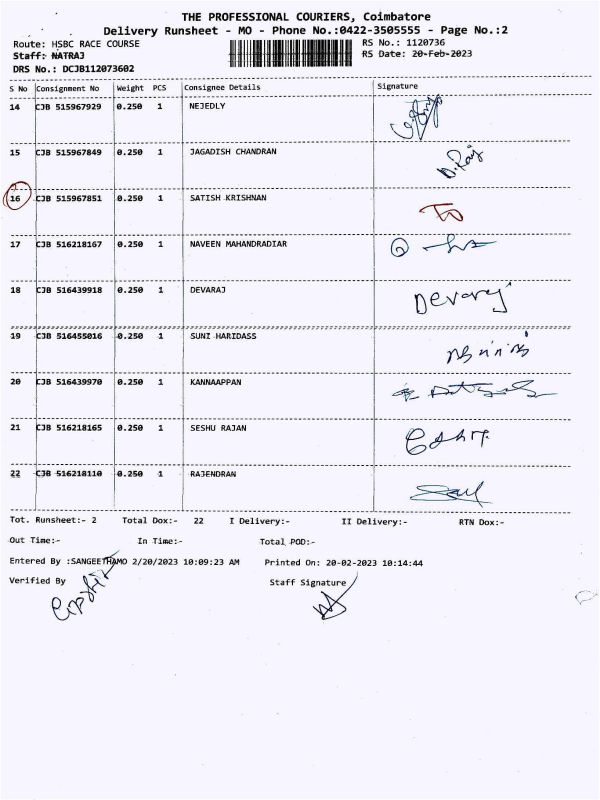 THE PROFESSIONAL COURIERS, Coimbatore
Delivery Runsheet - MO - Phone No.:0422-3505555 - Page No.:2
Route: HSBC RACE COURSE RS No.: 1120736
Staff: NATRAJ RS Date: 20-Feb-2023
DRS No.: DCJB112073602
S No Consignment No Weight PCS Consignee Details Signature
14 CJB 515967929 0.250 1 NEJEDLY
15 CJB 515967849 0.250 1 JAGADISH CHANDRAN D. Raj
16 CJB 515967851 0.250 1 SATISH KRISHNAN
17 CJB 516218167 0.250 1 NAVEEN MAHANDRADIAR
18 CJB 516439918 0.250 1 DEVARAJ Devaraj
19 CJB 516455016 0.250 1 SUNI HARIDASS
20 CJB 516439970 0.250 1 KANNAAPPAN
21 CJB 516218165 0.250 1 SESHU RAJAN
22 CJB 516218110 0.250 1 RAJENDRAN
Tot. Runsheet:- 2 Total Dox:- 22 I Delivery:- II Delivery:- RTN Dox:-
Out Time:- In Time:- Total POD:-
Entered By :SANGEETHAMO 2/20/2023 10:09:23 AM Printed On: 20-02-2023 10:14:44
Verified By Staff Signature